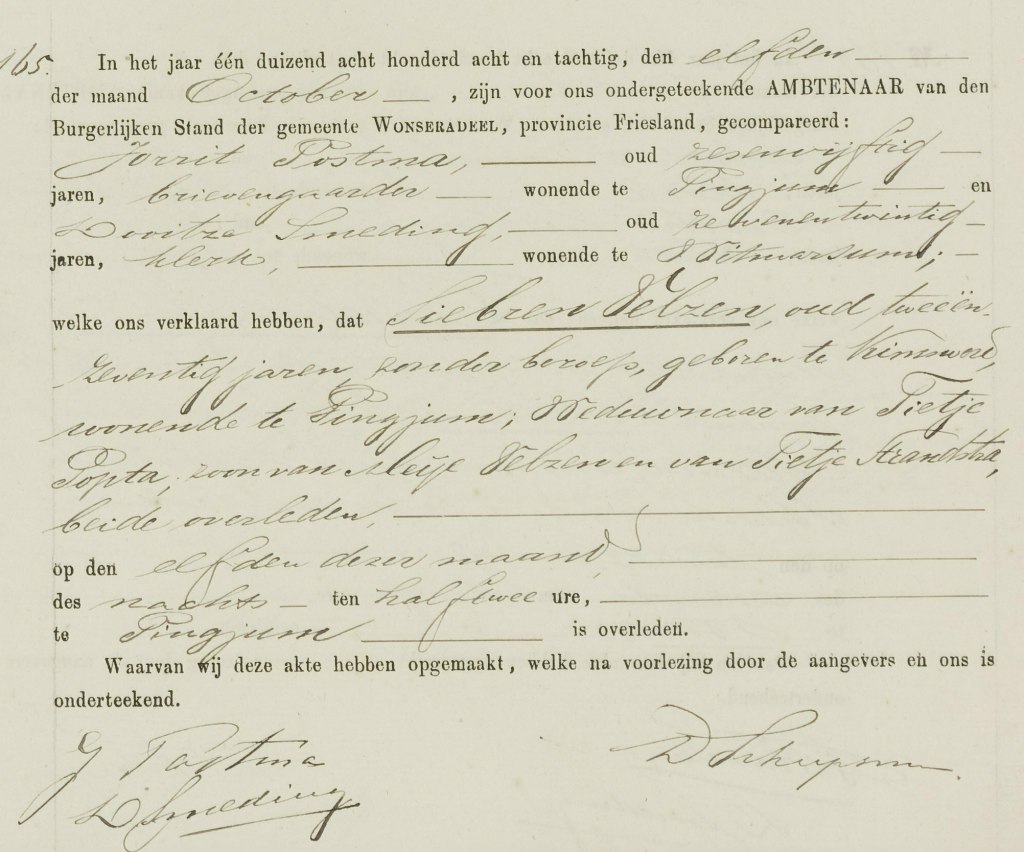 165. In het jaar één duizend acht honderd acht en tachtig, den elfden
der maand October, zijn voor ons ondergeteekende AMBTENAAR van den
Burgerlijken Stand der gemeente WONSERADEEL, provincie Friesland, gecompareerd:
Jorrit Postma, oud zesenvijftig
jaren, brievengaarder wonende te Pingjum en
Douitze Smeding, oud zevenentwintig
jaren, klerk, wonende te Witmarsum;
welke ons verklaard hebben, dat Siebren Velzen, oud tweeën-
zeventig jaren, zonder beroep, geboren te Kimswerd,
wonende te Pingjum; Weduwnaar van Tietje
Popta, zoon van Meije Velzen en van Tietje Strandstra,
beide overleden,
op den elfden dezer maand,
des nachts ten half twee ure,
te Pingjum is overleden.
Waarvan wij deze akte hebben opgemaakt, welke na voorlezing door de aangevers en ons is
onderteekend.
J Postma
D Smeding